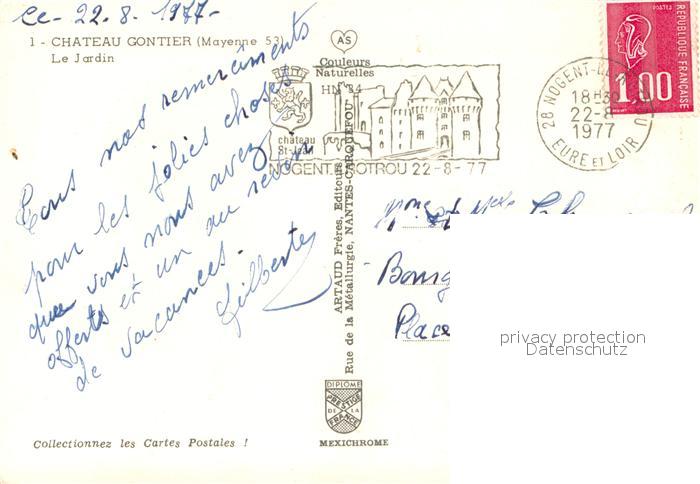 Ce - 22. 8. 1977 -
1 - CHATEAU GONTIER (Mayenne 53)
Le Jardin
AS
Couleurs
Naturelles
HN 34
Tous nos remerciments
pour les jolies choses
que vous nous avez
offerts et un au revoir
de vacances.
Gilberte
château
St-Jean
NOGENT ROTROU 22-8-77
28 NOGENT-LE-
18H30
22-8
1977
EURE ET LOIR
POSTES
REPUBLIQUE FRANÇAISE
1,00
ARTAUD Frères, Editeurs
Rue de la Métallurgie, NANTES-CARQUEFOU
Place
privacy protection
Datenschutz
DIPLOME
PRESTIGE
DE LA
FRANCE
MEXICHROME
Collectionnez les Cartes Postales !